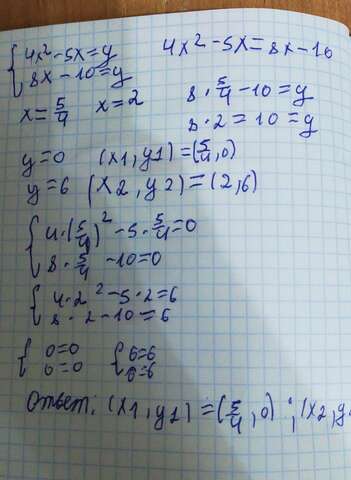 {4x²-5x=y    4x²-5x=8x-10
{8x-10=y
x=5/4   x=2    8·5/4-10=y
8·2=10=y
y=0   (x1,y1)=(5/4,0)
y=6   (x2,y2)=(2,6)
{4·(5/4)²-5·5/4=0
{8·5/4-10=0
{4·2²-5·2=6
{8·2-10=6
{0=0   {6=6
{0=0   {6=6
Ответ: (x1,y1)=(5/4,0); (x2,y